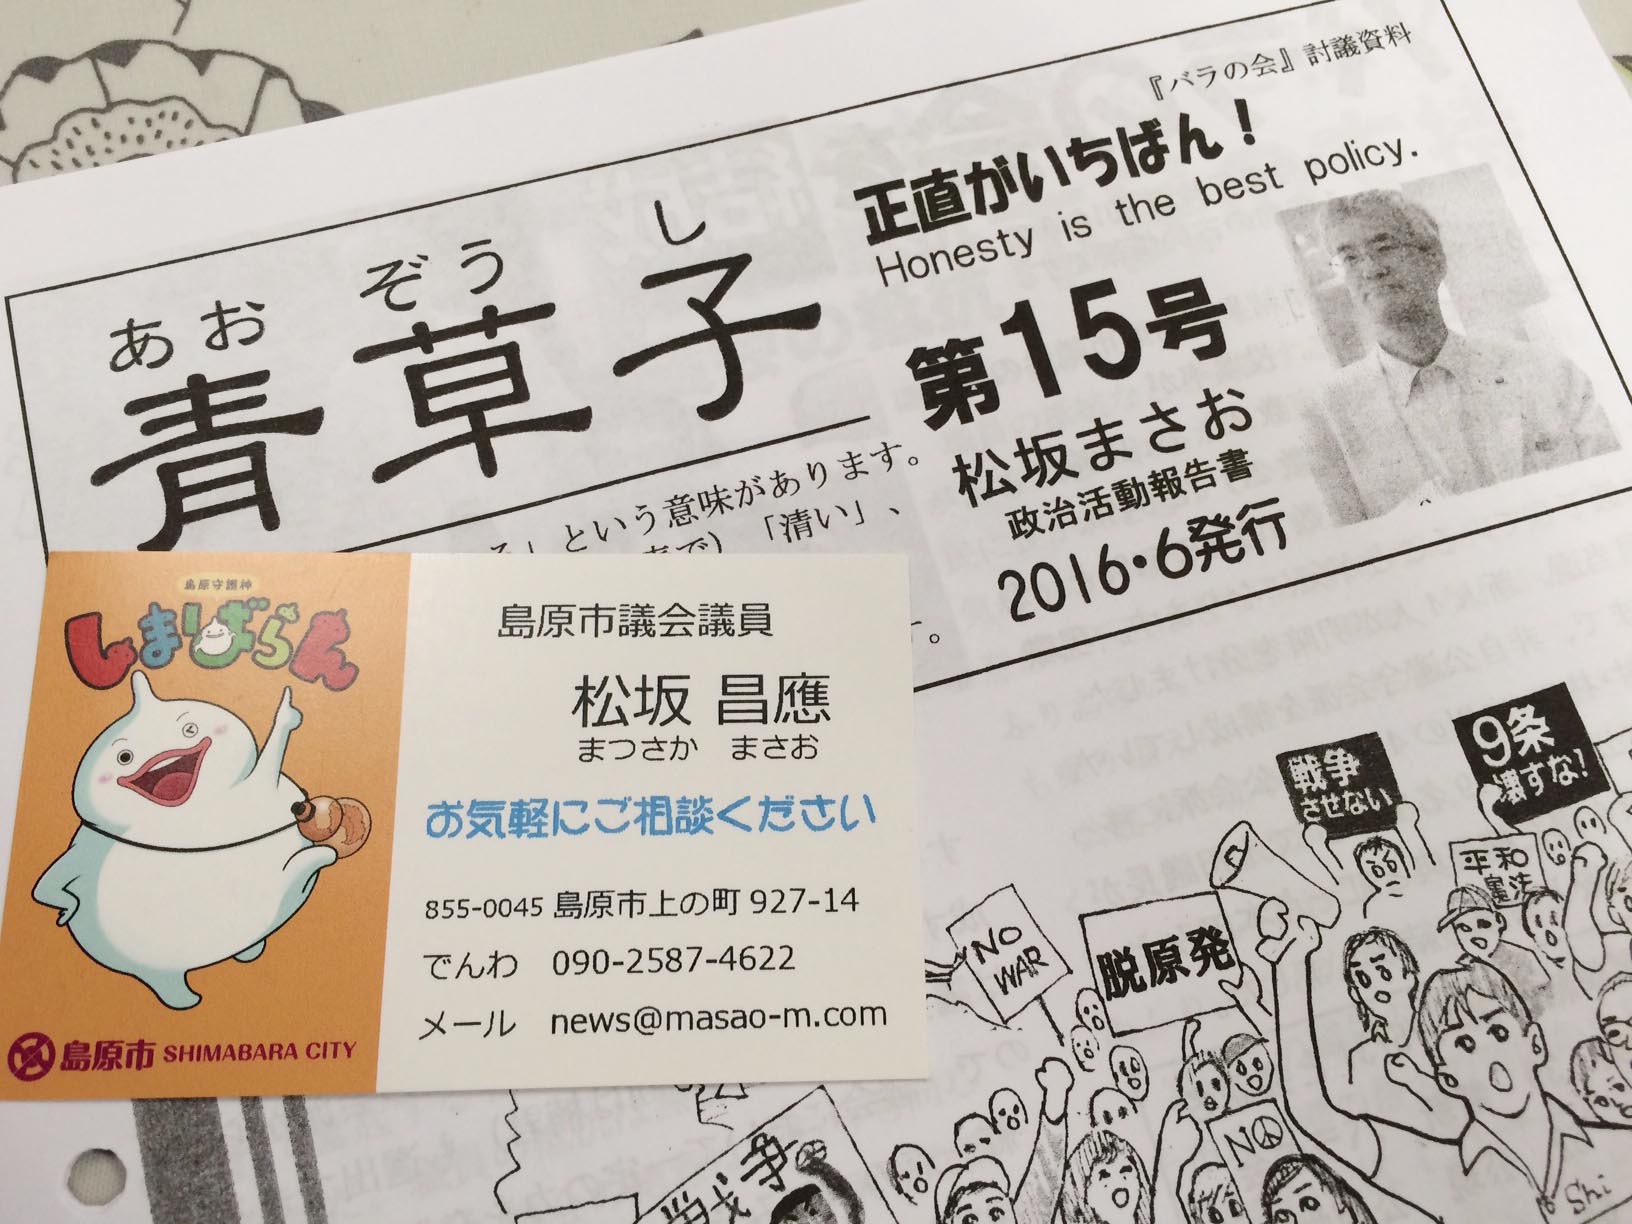 『バラの会』討議資料
正直がいちばん！
Honesty is the best policy.
あお ぞう し
青草子
第15号
松坂まさお
政治活動報告書
2016・6発行
という意味があります。
「清い」、
島原守護神
しまばらん
島原市 SHIMABARA CITY
島原市議会議員
松坂 昌應
まつさか まさお
お気軽にご相談ください
855-0045 島原市上の町 927-14
でんわ 090-2587-4622
メール news@masao-m.com
戦争
させない
9条
壊すな!
平和
憲法
NO
WAR
脱原発
NO
戦争